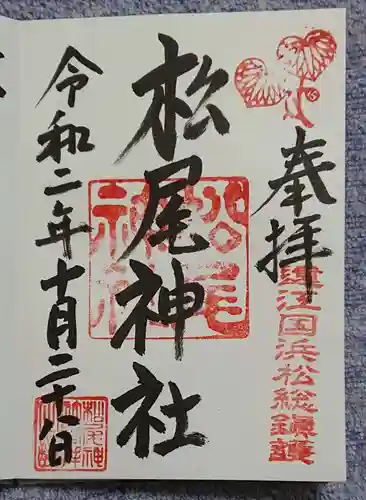 奉拝
遠江国浜松総鎮護
松尾神社
松尾神社
令和二年十月二十八日